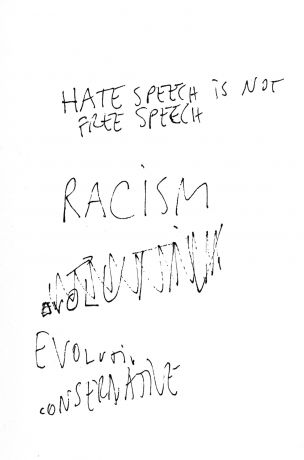 HATE SPEECH iS NOT
FREE SPEECH
RACiSM
EVOLUTi.
CONSERNATIVE